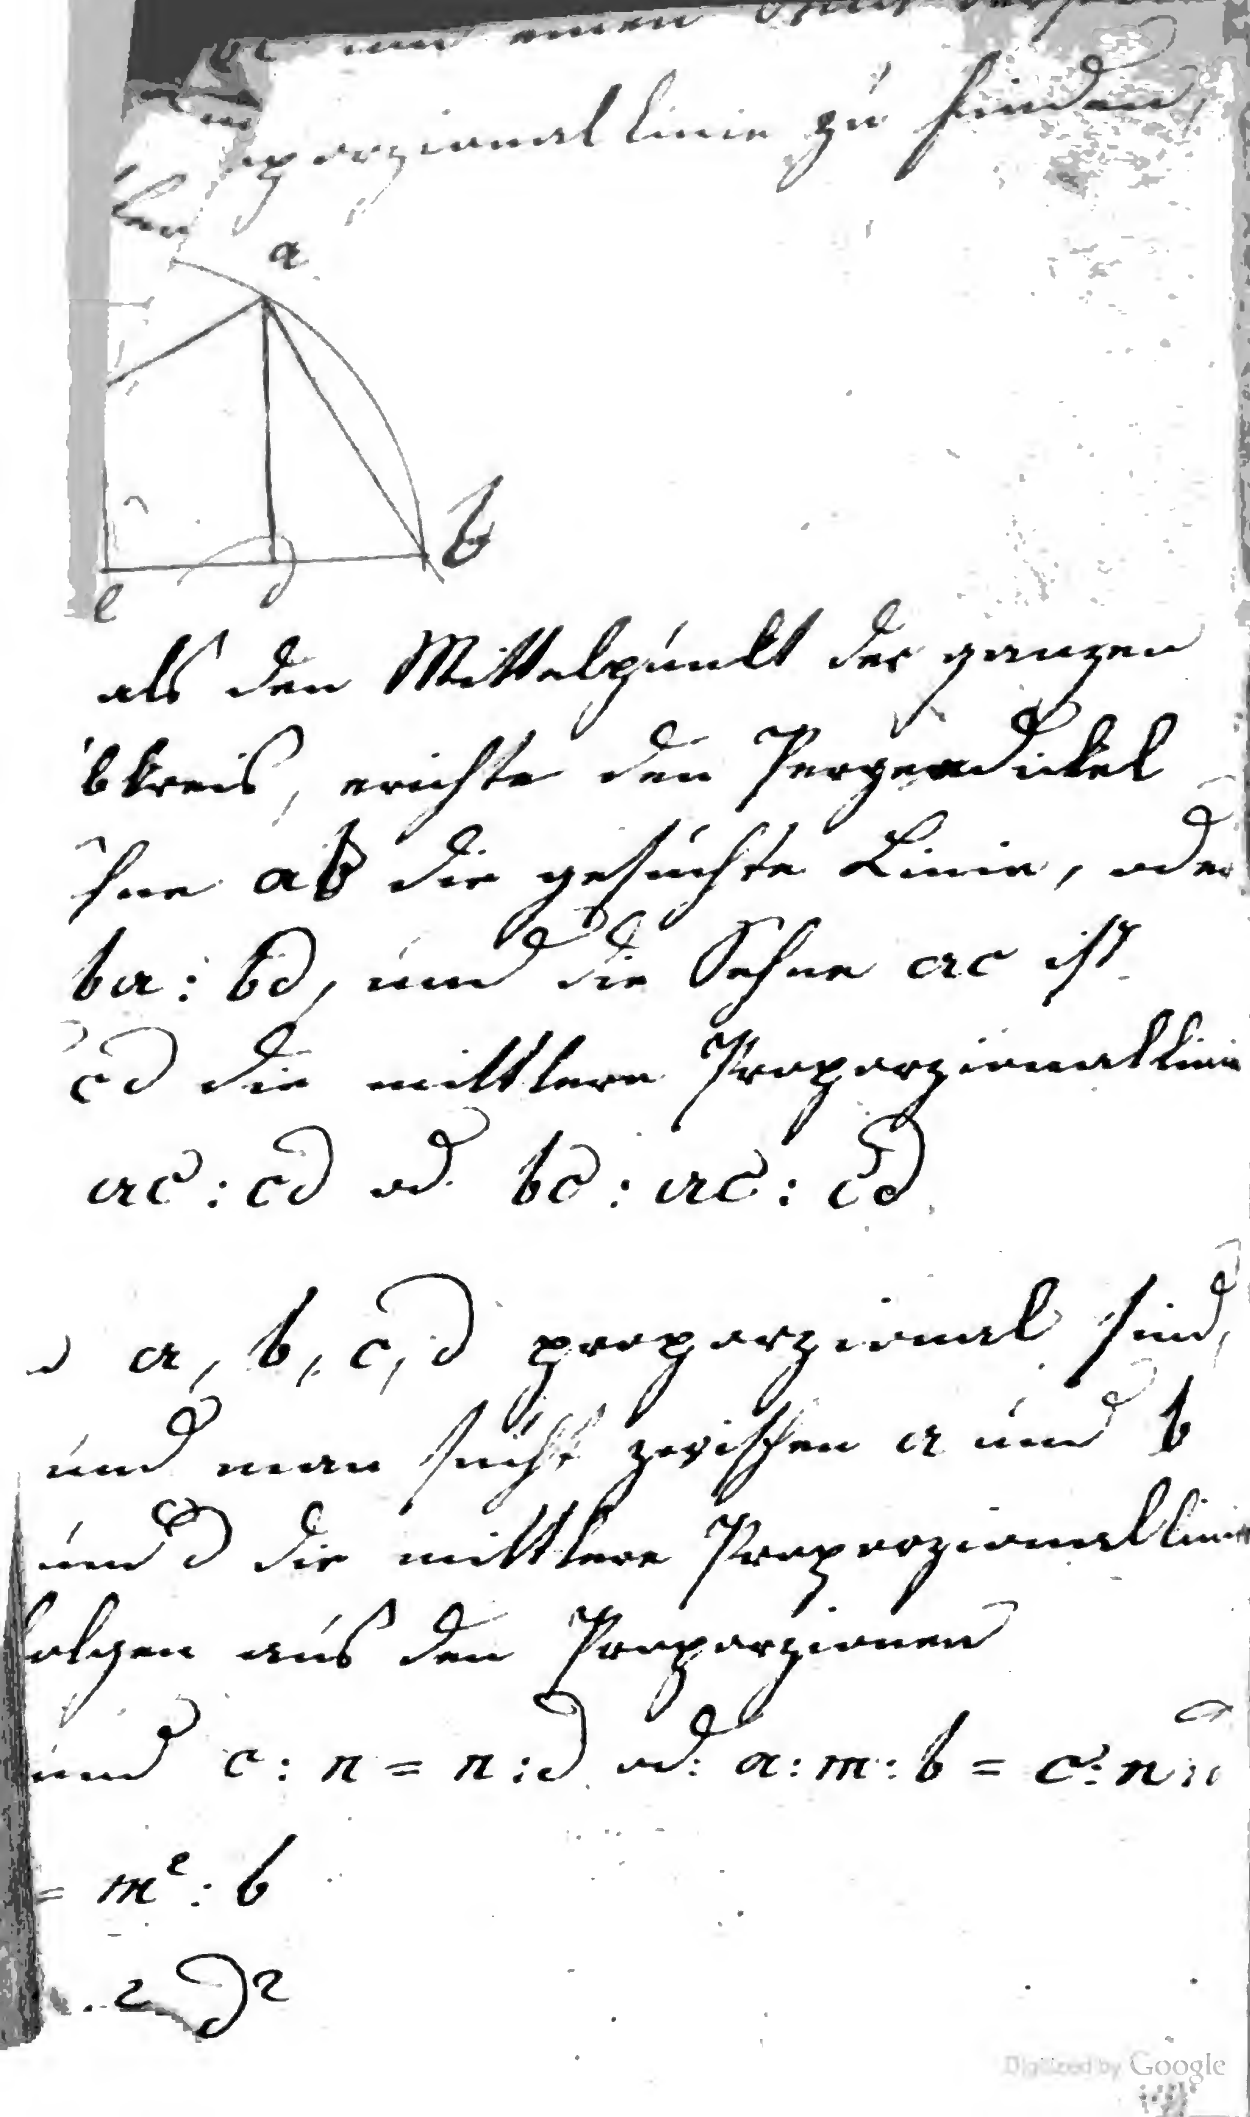 um einen
porzionallinie zu finden,
a
b
e
d
als den Mittelpunkt der ganzen
bkreis, erichte den Perpendickel
hne ab die gesuchte Linie, oder
ba : bd, und die Sehne ac ist
cd die mittlere Proporzionallinie
ac : cd od. bc : ac : cd
a, b, c, d proporzional sind,
und man sucht zwischen a und b
und d die mittlere Proporzionallinie
folgen aus den Proporzionen
und c : n = n : d od: a : m : b = c : n :
= m² : b
d²
Digitized by Google